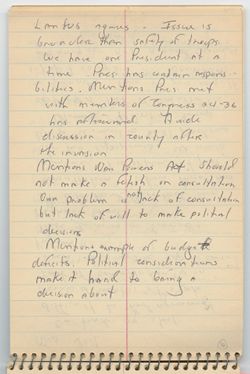 Lantos agrees. - Issue is
broader than safety of troops.
We have one President at a
time. Pres has certain respons-
bilities. Mentions Pres. met
with members of Congress 24-36
has afterward. A wide
discussion in country after
the invasion
Mentions War Powers Act Should
not make a fetish on consultation
Our problem not lack of consultation
but lack of will to make political
decisions
Mentions example of budget
deficits. Political considerations
make it hard to bring a
decision about